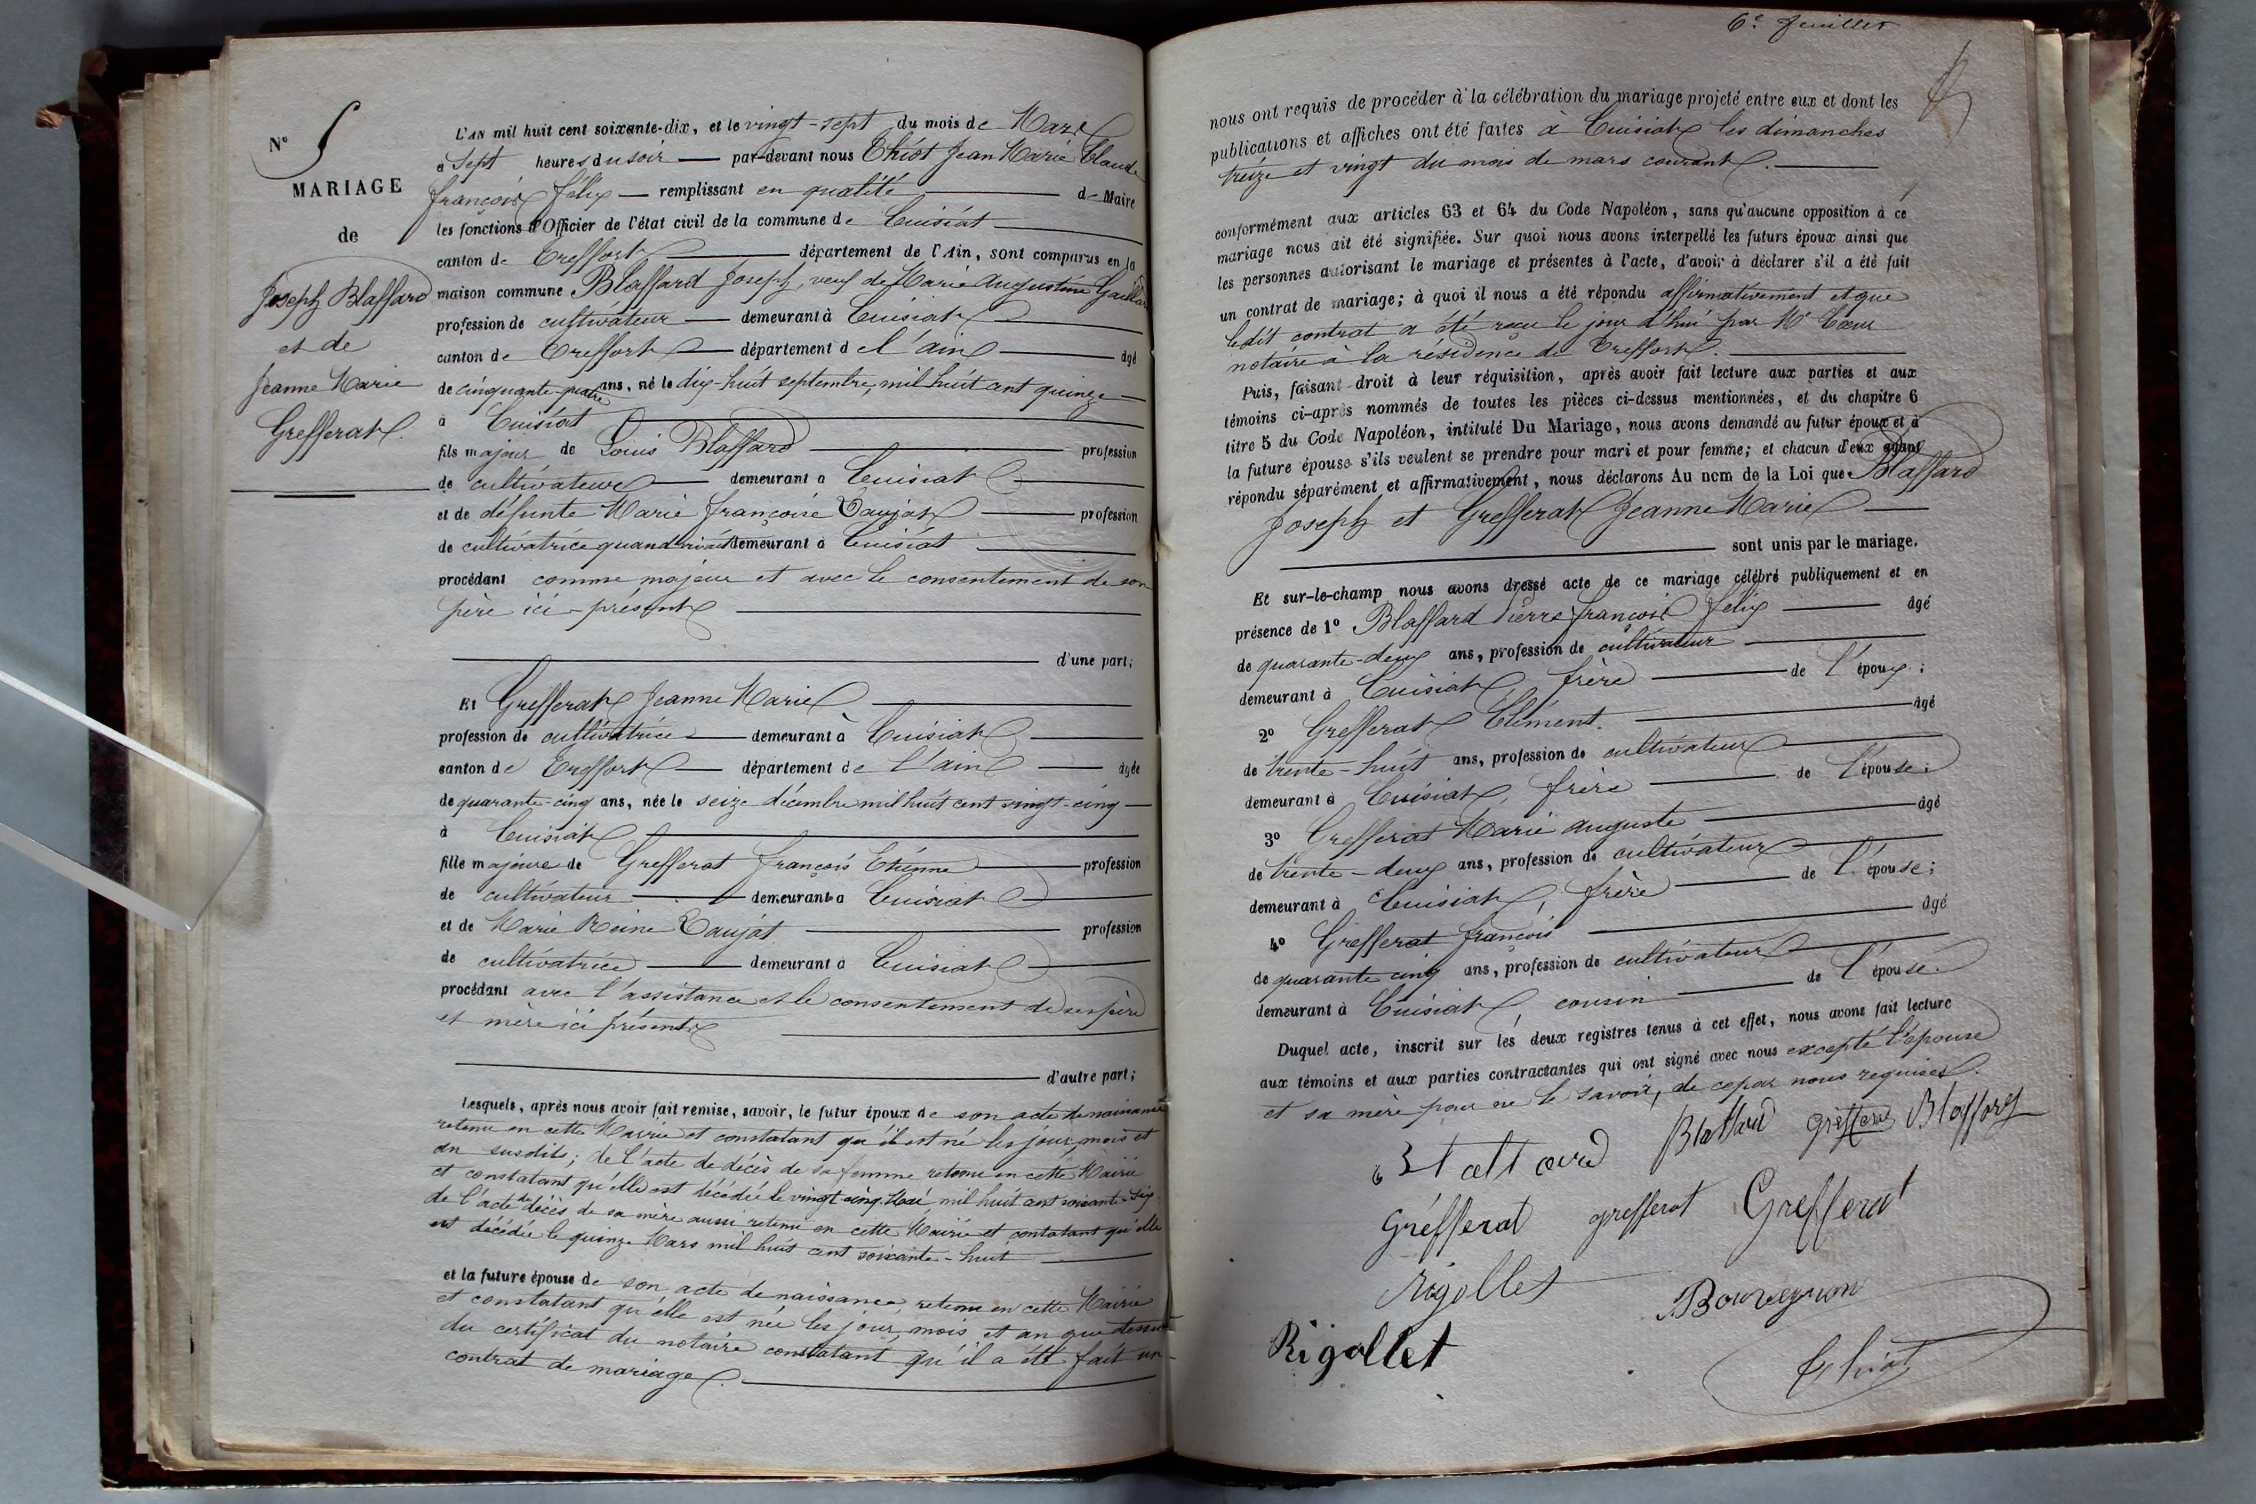 Nº 5
MARIAGE
de
Joseph Blaffard
et de
Jeanne Marie
Grefferat.
L'AN mil huit cent soixante-dix, et le vingt-sept du mois de Mars
à Sept heures du soir par-devant nous Thiot Jean Marie Claude
françois félix remplissant en qualité de Maire
les fonctions d'Officier de l'état civil de la commune de Cuisiat
canton de Treffort département de l'Ain, sont comparus en la
maison commune Blaffard Joseph, veuf de Marie Augustine Gaillard
profession de cultivateur demeurant à Cuisiat
canton de Treffort département de l'ain âgé
de cinquante-quatre ans, né le dix-huit septembre, mil huit cent quinze
à Cuisiat
fils majeur de Louis Blaffard profession
de cultivateur demeurant à Cuisiat
et de défunte Marie françoise Taujat profession
de cultivatrice quand vivait demeurant à Cuisiat
procédant comme majeur et avec le consentement de son
père ici-présent
d'une part;
Et Grefferat Jeanne Marie
profession de cultivatrice demeurant à Cuisiat
canton de Treffort département de l'ain âgée
de quarante-cinq ans, née le seize décembre mil huit cent vingt-cinq
à Cuisiat
fille majeure de Grefferat françois Etienne profession
de cultivateur demeurant à Cuisiat
et de Marie Reine Taujat profession
de cultivatrice demeurant à Cuisiat
procédant avec l'assistance et le consentement de ses père
et mère ici présents
d'autre part;
Lesquels, après nous avoir fait remise, savoir, le futur époux de son acte de naissance
retenu en cette Mairie et constatant qu'il est né les jour, mois et
an susdits; de l'acte de décès de sa femme retenu en cette Mairie
et constatant qu'elle est décédée le vingt cinq Mai mil huit cent soixante-six
de l'acte de décès de sa mère aussi retenu en cette Mairie et contatant qu'elle
est décédée le quinze Mars mil huit cent soixante-huit
et la future épouse de son acte de naissance, retenu en cette Mairie
et constatant qu'elle est née les jour, mois et an que dessus
du certificat du notaire constatant qu'il a été fait un
contrat de mariage.
6e feuillet
nous ont requis de procéder à la célébration du mariage projeté entre eux et dont les
publications et affiches ont été faites à Cuisiat les dimanches
treize et vingt du mois de mars courant.
conformément aux articles 63 et 64 du Code Napoléon, sans qu'aucune opposition à ce
mariage nous ait été signifiée. Sur quoi nous avons interpellé les futurs époux ainsi que
les personnes autorisant le mariage et présentes à l'acte, d'avoir à déclarer s'il a été fait
un contrat de mariage; à quoi il nous a été répondu affirmativement et que
ledit contrat a été reçu le jour d'hui par Me Cœur
notaire à la résidence de Treffort.
Puis, faisant droit à leur réquisition, après avoir fait lecture aux parties et aux
témoins ci-après nommés de toutes les pièces ci-dessus mentionnées, et du chapitre 6
titre 5 du Code Napoléon, intitulé Du Mariage, nous avons demandé au futur époux et à
la future épouse s'ils veulent se prendre pour mari et pour femme; et chacun d'eux ayant
répondu séparément et affirmativement, nous déclarons Au nom de la Loi que Blaffard
Joseph et Grefferat Jeanne Marie
sont unis par le mariage.
Et sur-le-champ nous avons dressé acte de ce mariage célébré publiquement et en
présence de 1º Blaffard Pierre françois félix âgé
de quarante-deux ans, profession de cultivateur
demeurant à Cuisiat, frère de l'époux;
2º Grefferat Clément. âgé
de trente-huit ans, profession de cultivateur
demeurant à Cuisiat, frère de l'épouse;
3º Grefferat Marie auguste âgé
de trente-deux ans, profession de cultivateur
demeurant à Cuisiat, frère de l'épouse;
4º Grefferat françois âgé
de quarante cinq ans, profession de cultivateur
demeurant à Cuisiat, cousin de l'épouse.
Duquel acte, inscrit sur les deux registres tenus à cet effet, nous avons fait lecture
aux témoins et aux parties contractantes qui ont signé avec nous excepté l'épouse
et sa mère pour ne le savoir, de ce par nous requises.
Blaffard Grefferat Blaffard
Grefferat grefferat Grefferat
Rigollet Bouveyron
Rigollet Thiot